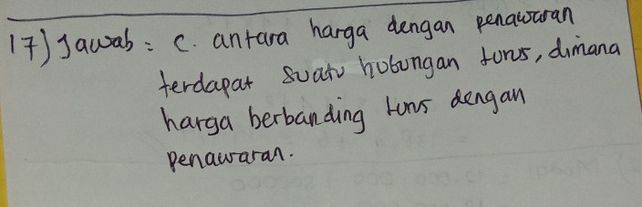 17) Jawab : C. antara harga dengan penawaran
terdapat suatu hubungan lurus, dimana
harga berbanding lurus dengan
penawaran.